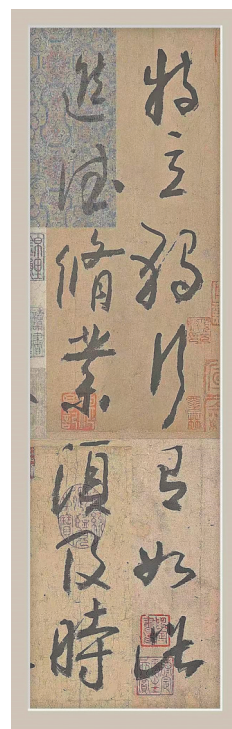 特立獨行有如此
進德脩業須及時